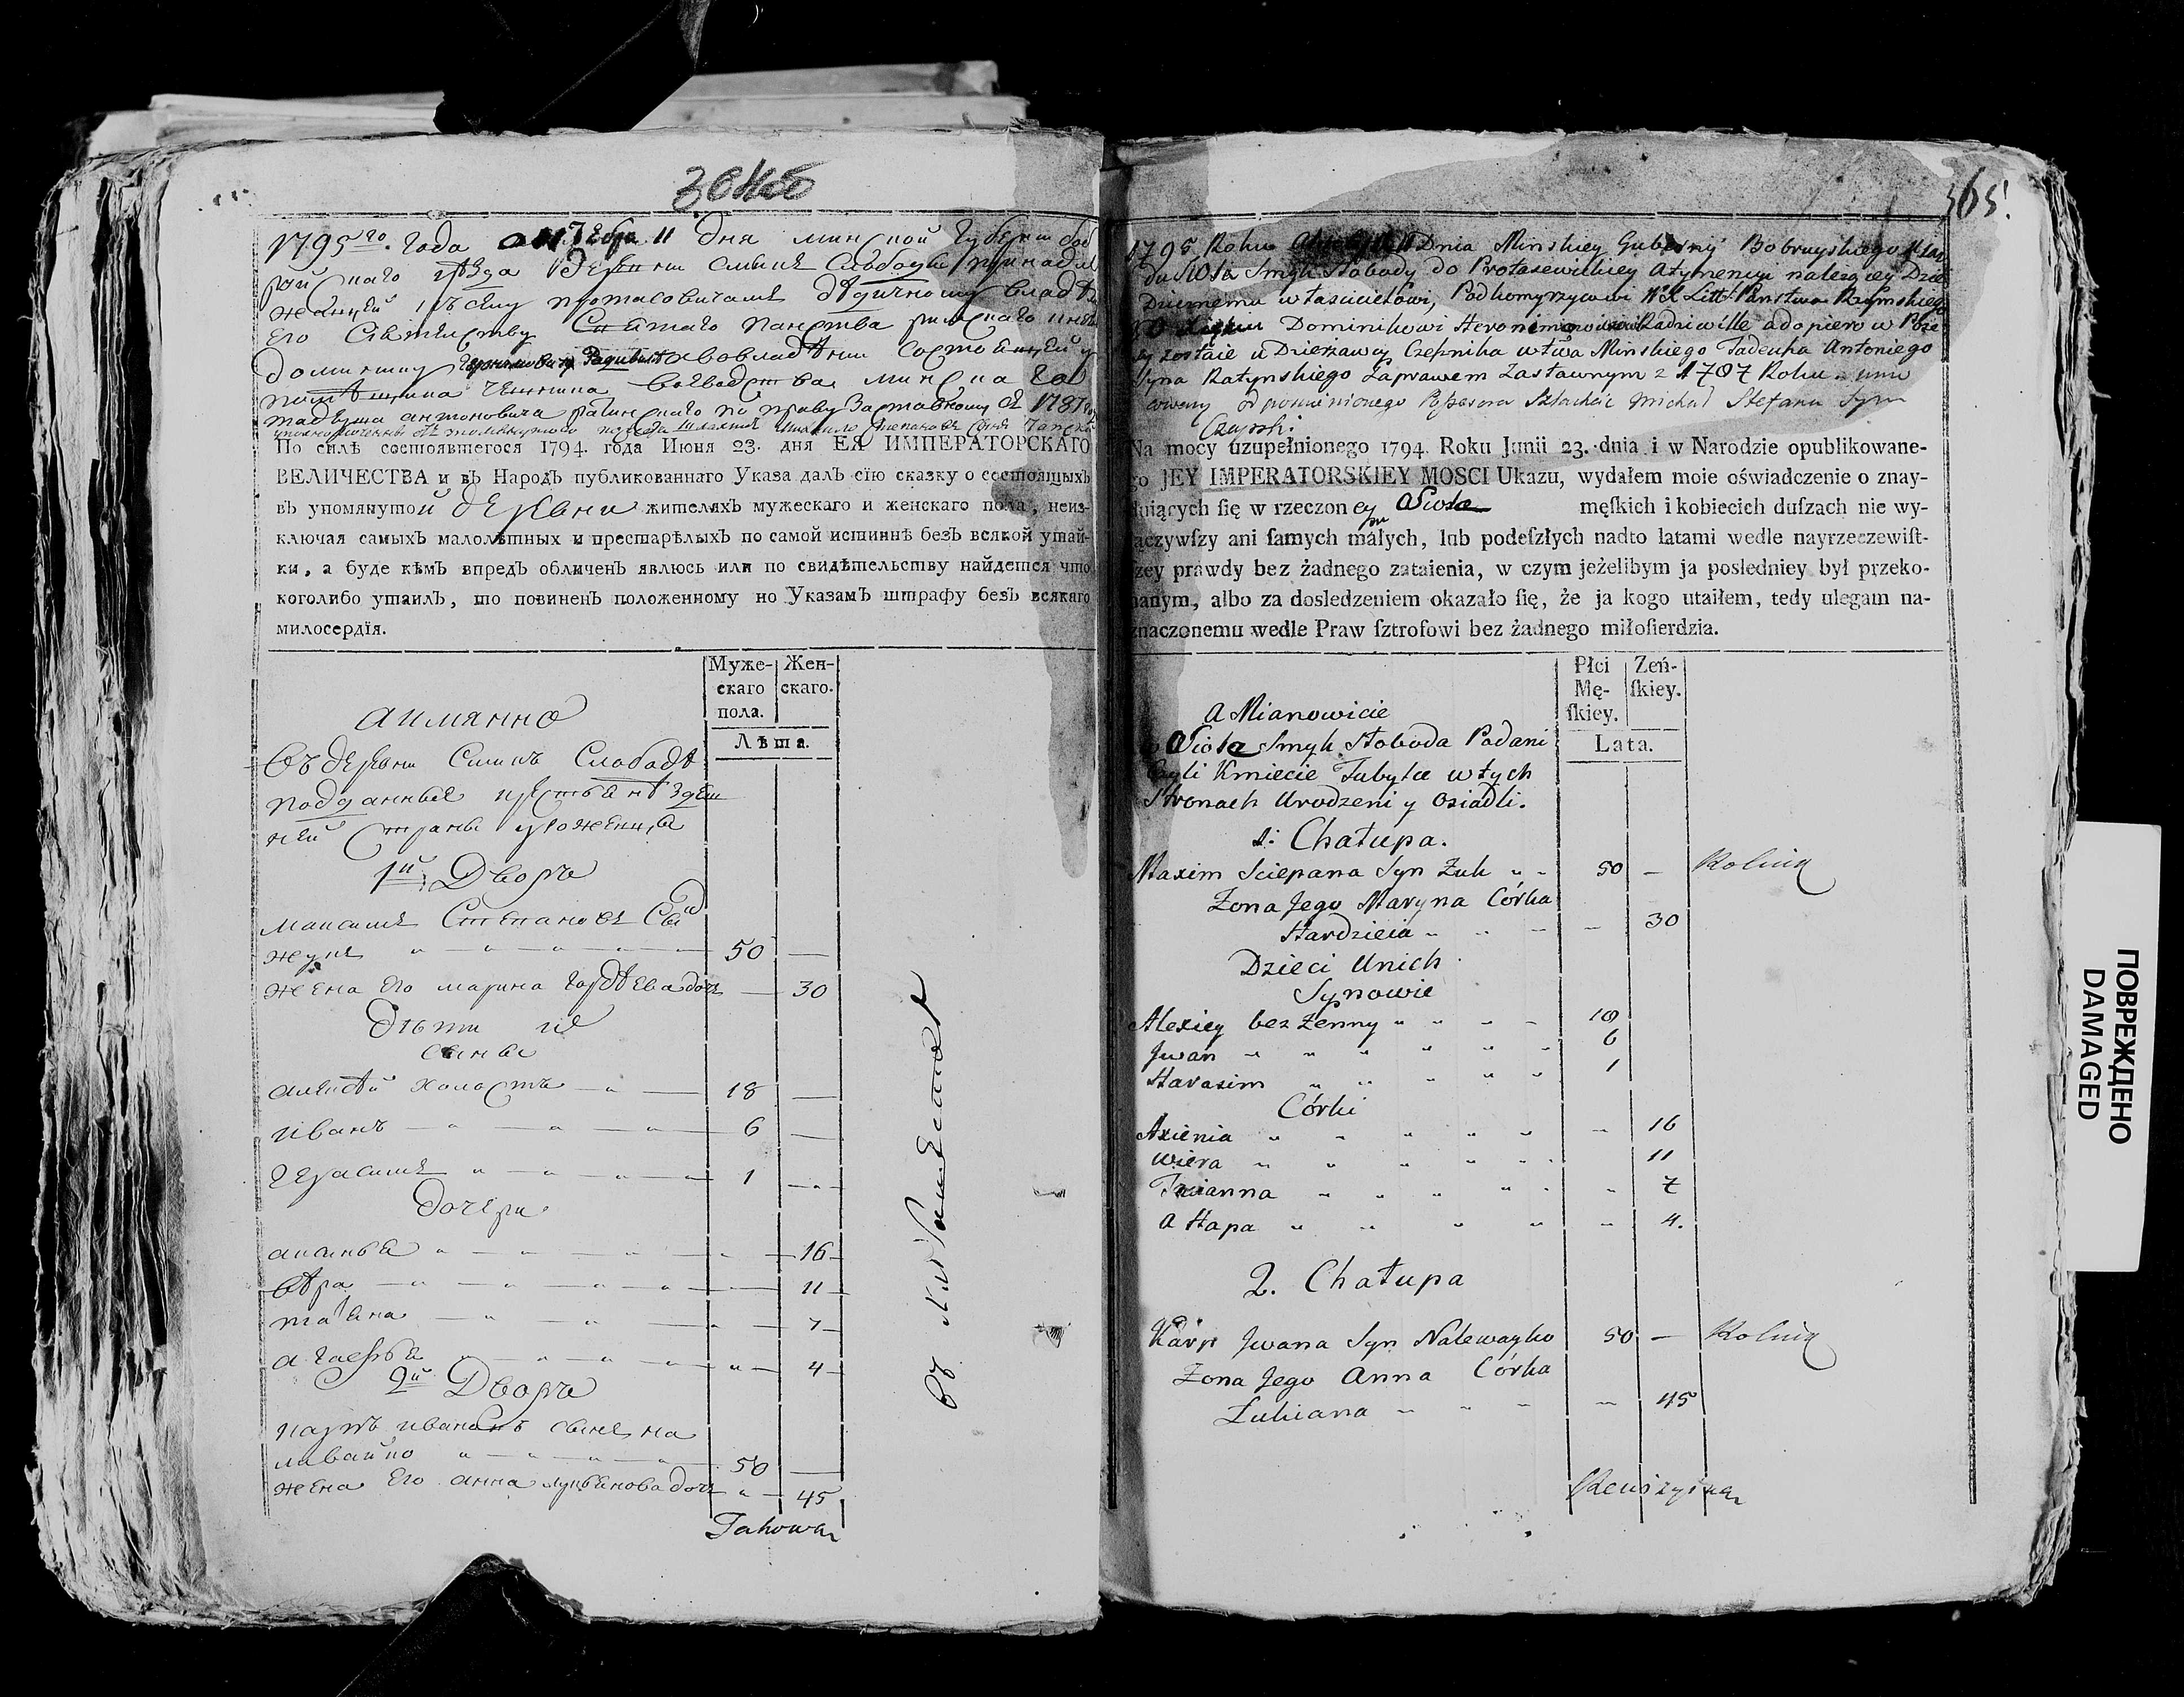 1795го года октебра 11 дня минской губернии боб
ройского уезда деревни Смыкъ Слободы принадле
жащей къ селу протасовичамъ дедичному владе
Его Сіятелству Святаго панства римскаго
доминику Геронимовичу Радивилу а во владении состоящей у
помещика чешника воеводства минскаго
тадеуша антоновича ратинскаго по праву заставному съ 1787
По силѣ состоявшегося 1794. года Июня 23. дня ЕЯ ИМПЕРАТОРСКАГО
ВЕЛИЧЕСТВА и въ Народъ публикованнаго Указа далъ сїю сказку о состоящыхъ
въ упомянутой деревни жителяхъ мужескаго и женскаго пола, неиз-
ключая самыхъ малолѣтныхъ и престарѣлыхъ по самой истиннѣ безъ всякой утай-
ки, а буде кѣмъ впредъ обличенъ явлюсь или по свидѣтельству найдется что
коголибо утаилъ, то повиненъ положенному по Указамъ штрафу безъ всякаго
милосердїя.
Муже-
скаго
пола.
Жен-
скаго.
Лѣта.
а имянно
Въ деревни Смыкъ Слободѣ
подданные крестьянѣ здеш
ней Страны уроженцы
1й Дворъ
максимъ Степановъ Сынъ
жукъ 50 —
жена Его марина гордѣева дочь — 30
дѣти ихъ
сыны
алексѣй холостъ 18 —
иванъ 6 —
герасимъ 1 —
дочери
аксинья 16
вѣра 11
татьяна 7
агафья 4
2й Дворъ
карпъ ивановъ сынъ на
ливайко 50 —
жена Его анна лукьянова дочь 45
Takowa
365.
1795 Roku Dnia Minskiey Guberny Bobruyskiego
Smyk Słobody do Protasewickiey Atynencyi należącey Dzie
Dzicznemu właścicielowi, Podkomorzycowi W X Litt Państwa Rzymskiego
Dominikowi Heronimowiczowi Radziwiłle a dopiero w Pose
zostaie u Dzierżawcy Czesnika wtwa Minskiego Tadeusza Antoniego
Syna Ratynskiego Zaprawem Zastawnym z 1787 Roku
od pomienionego Possesora Szlachcic Michał Stefana Syn
Na mocy uzupełnionego 1794. Roku Junii 23. dnia i w Narodzie opublikowane-
go JEY IMPERATORSKIEY MOSCI Ukazu, wydałem moie oświadczenie o znay-
duiących ſię w rzeczoney Siole męſkich i kobiecich duſzach nie wy-
łączywſzy ani ſamych małych, lub podeſzłych nadto latami wedle nayrzeczewiſt-
szey prawdy bez żadnego zataienia, w czym jeżelibym ja posledniey był przeko-
nanym, albo za dosledzeniem okazało ſię, że ja kogo utaiłem, tedy ulegam na-
znaczonemu wedle Praw ſztrofowi bez żadnego miłoſierdzia.
Płci
Mę-
ſkiey.
Zeń-
ſkiey.
Lata.
A Mianowicie
Siole Smyk Słoboda Podani
Czyli Kmiecie Tubylce w tych
Stronach Urodzeni y Osiadli.
1: Chałupa.
Maxim Sciepana Syn Żuk 50 — Rolnik
Żona Jego Maryna Córka
Hardzieia — 30
Dzieci Unich
Synowie
Alexiey bez Żenny 18
Jwan 6
Harasim 1
Córki
Axienia 16
Wiera 11
Tacianna 7
A Hapa 4.
2. Chałupa
Karp Jwana Syn Nalewayko 50 — Rolnik
Żona Jego Anna Córka
Łukiana 45
ПОВРЕЖДЕНО
DAMAGED